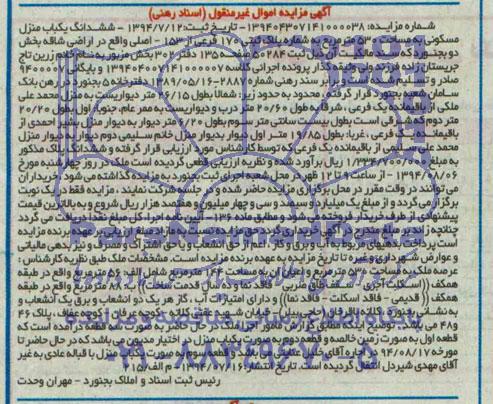 آگهی مزایده اموال غیرمنقول (اسناد رهنی)
شماره مزایده: ۱۳۹۴۰۴۳۰۷۱۴۱۰۰۰۰۳۸ - تاریخ ثبت: ۱۳۹۴/۷/۱۲ - ششدانگ یکباب منزل
مسکونی به مساحت ۵۳۰ متر مربع به شماره پلاک ثبتی فرعی از ۱۵۳ - اصلی واقع در اراضی شاقه بخش
دو بجنورد که سند مالکیت ثبت ۲۸۴ صفحه ۱۳۵ دفتر ۳۰ بخش مزبور به نام خانم زرین تاج
جریستان زاده فرزند ولی طبقه کلاسه
صادر و تسلیم شده برابر سند رهنی شماره ۲۸۸۷ دفترخانه ۵ بجنورد در رهن بانک
سامان شعبه بجنورد قرار گرفته و محدود به حدود زیر: شمالا بطول ۲۶/۱۵ متر دیواریست به منزل محمد علی
ملکی از باقیمانده یک فرعی، شرقا به طول ۲۰/۶۰ متر درب و دیواریست به ممر عام، جنوبا اول بطول ۲۰/۲۰
متر دوم که شرقی است بطول بیست سانتی متر سوم بطول ۶/۲۰ متر دیوار به دیوار منزل بشیر احمدی از
باقیمانده یک فرعی، غربا: بطول ۱۹/۸۵ متر اول دیوار بدیوار منزل خانم سلیمی دوم دیوار به دیوار منزل
محمد علی سلیمی از باقیمانده یک فرعی که توسط کارشناس مورد ارزیابی قرار گرفته و ششدانگ پلاک مذکور
به مبلغ ریال برآورد شده و نظریه ارزیابی قطعی گردیده است ملک در روز چهارشنبه مورخ
۱۳۹۴/۰۸/۰۶ - از ساعت ۹ تا ۱۲ ظهر در محل شعبه اجرای ثبت بجنورد به مزایده گذاشته می شود خریداران
می توانند در وقت مقرر در محل برگزاری مزایده حاضر شده و در جلسه شرکت نمایند. مزایده فقط در یک نوبت
برگزار می گردد و از مبلغ یک میلیارد و سیصد و سی و چهار میلیون و هفتصد هزار ریال شروع و به بالاترین قیمت
پیشنهادی از طرف خریدار فروخته می شود و مطابق ماده ۱۳۶ - آیین نامه اجرا کل مبلغ نقدا دریافت می گردد
چنانچه زائد بر مبلغ مندرج در آگهی خریداری گردد حق مزایده نسبت به مازاد مبلغ ارزیابی بر عهده برنده مزایده
است پرداخت بدهیهای مربوط به آب و برق و گاز، اعم از حق انشعاب یا حق اشتراک و مصرف و نیز بدهی مالیاتی
و عوارض شهرداری و غیره تا تاریخ مزایده به عهده برنده مزایده است. مشخصات ملک طبق نظریه کارشناس:
عرصه ملک به مساحت ۵۳۰ متر مربع و اعیان آن به مساحت ۱۴۴ متر مربع شامل: الف ۵۶ متر مربع واقع در طبقه
همکف اسکلت آجری - سقف طاق ضربی - فاقد نما و که سال قدمت ساخت ب ۸۸ متر مربع واقع در طبقه
همکف (قدیمی - فاقد اسکلت - فاقد نما) و دارای امتیازات آب، گاز هر یک دو انشعاب و برق یک انشعاب و
به نشانی بجنورد کلاته باقرخان خیابان شهید کوچه عرفان ۱ کوچه عفاف، پلاک ۴۶
و ۴۸ می باشد. توضیح اینکه مطابق گزارش مامور اجرا ملک در حال حاضر به صورت دو قطعه درآمده است که
قطعه اول به صورت زمین خالصه و قطعه دوم به صورت یکباب منزل در اختیار مدیون می باشد که در حال حاضر تا
مورخه ۹۴/۰۸/۱۷ در اجاره آقای خلیل می باشد و قطعه سوم به صورت یکباب منزل با قباله عادی به غیر
آقای مهدی شیردل انتقال گردیده است. تاریخ انتشار: ۱۳۹۴/۰۷/۱۶ - م الف/۲۱۵
رئیس ثبت اسناد و املاک بجنورد - مهران وحدت